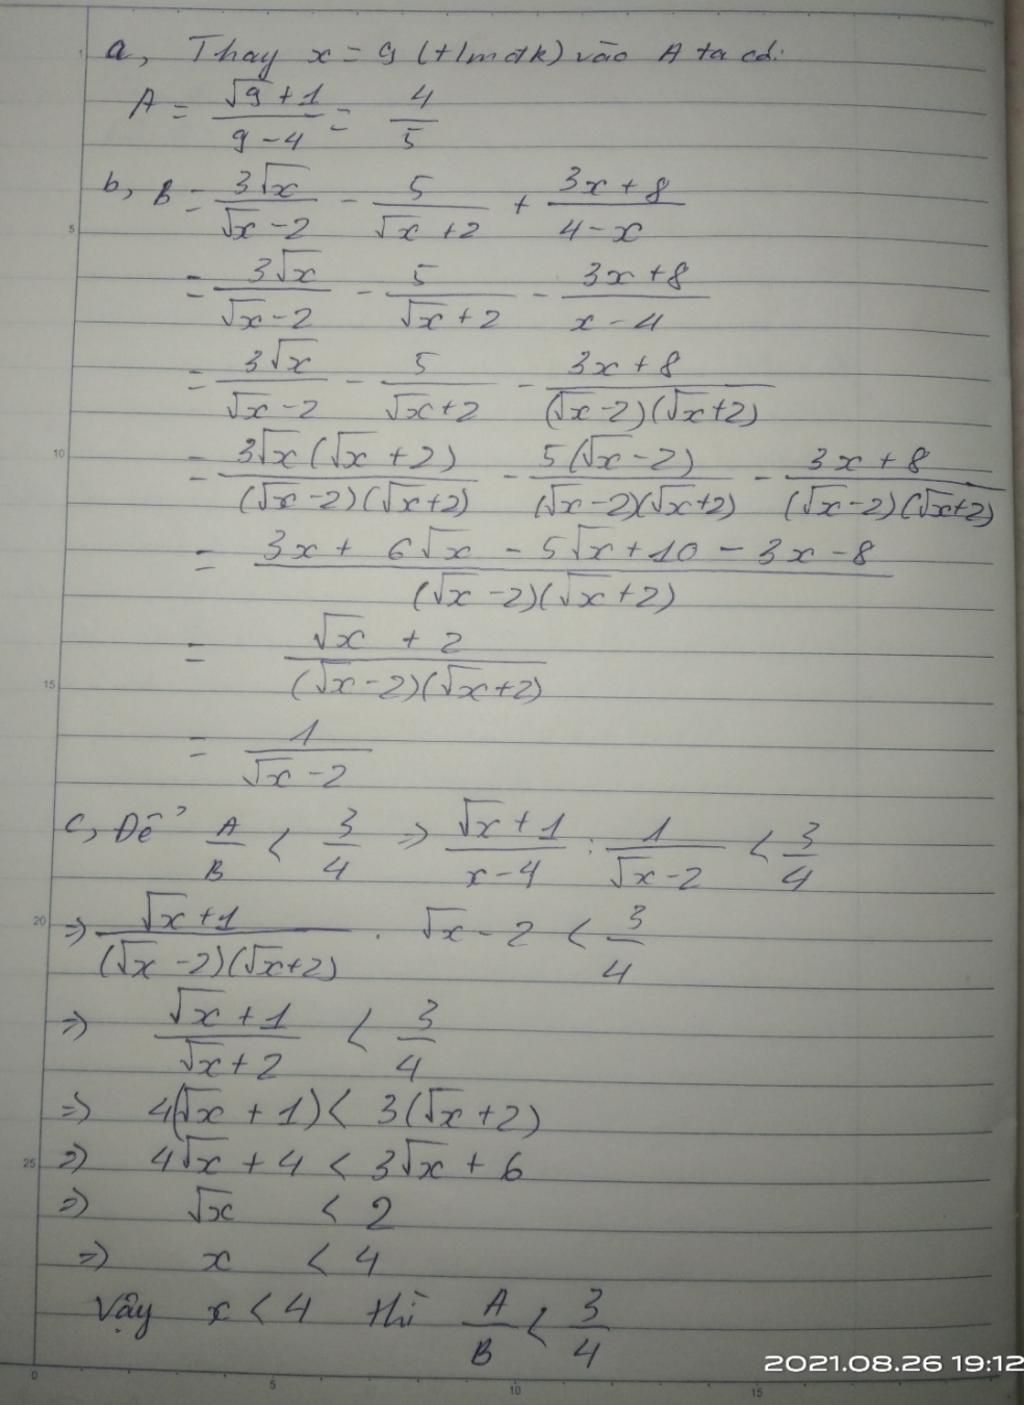 a, Thay x = 9 (t/m đk) vào A ta có:
A = (√9 + 1)/(9 - 4) = 4/5
b, B = 3√x/(√x - 2) - 5/(√x + 2) + (3x + 8)/(4 - x)
= 3√x/(√x - 2) - 5/(√x + 2) - (3x + 8)/(x - 4)
= 3√x/(√x - 2) - 5/(√x + 2) - (3x + 8)/((√x - 2)(√x + 2))
= 3√x(√x + 2)/((√x - 2)(√x + 2)) - 5(√x - 2)/((√x - 2)(√x + 2)) - (3x + 8)/((√x - 2)(√x + 2))
= (3x + 6√x - 5√x + 10 - 3x - 8)/((√x - 2)(√x + 2))
= (√x + 2)/((√x - 2)(√x + 2))
= 1/(√x - 2)
c, Để A/B < 3/4 => (√x + 1)/(x - 4) : 1/(√x - 2) < 3/4
=> (√x + 1)/((√x - 2)(√x + 2)) . √x - 2 < 3/4
=> (√x + 1)/(√x + 2) < 3/4
=> 4(√x + 1) < 3(√x + 2)
=> 4√x + 4 < 3√x + 6
=> √x < 2
=> x < 4
Vậy x < 4 thì A/B < 3/4
2021.08.26 19:12
1
5
10
15
20
25
0
5
10
15